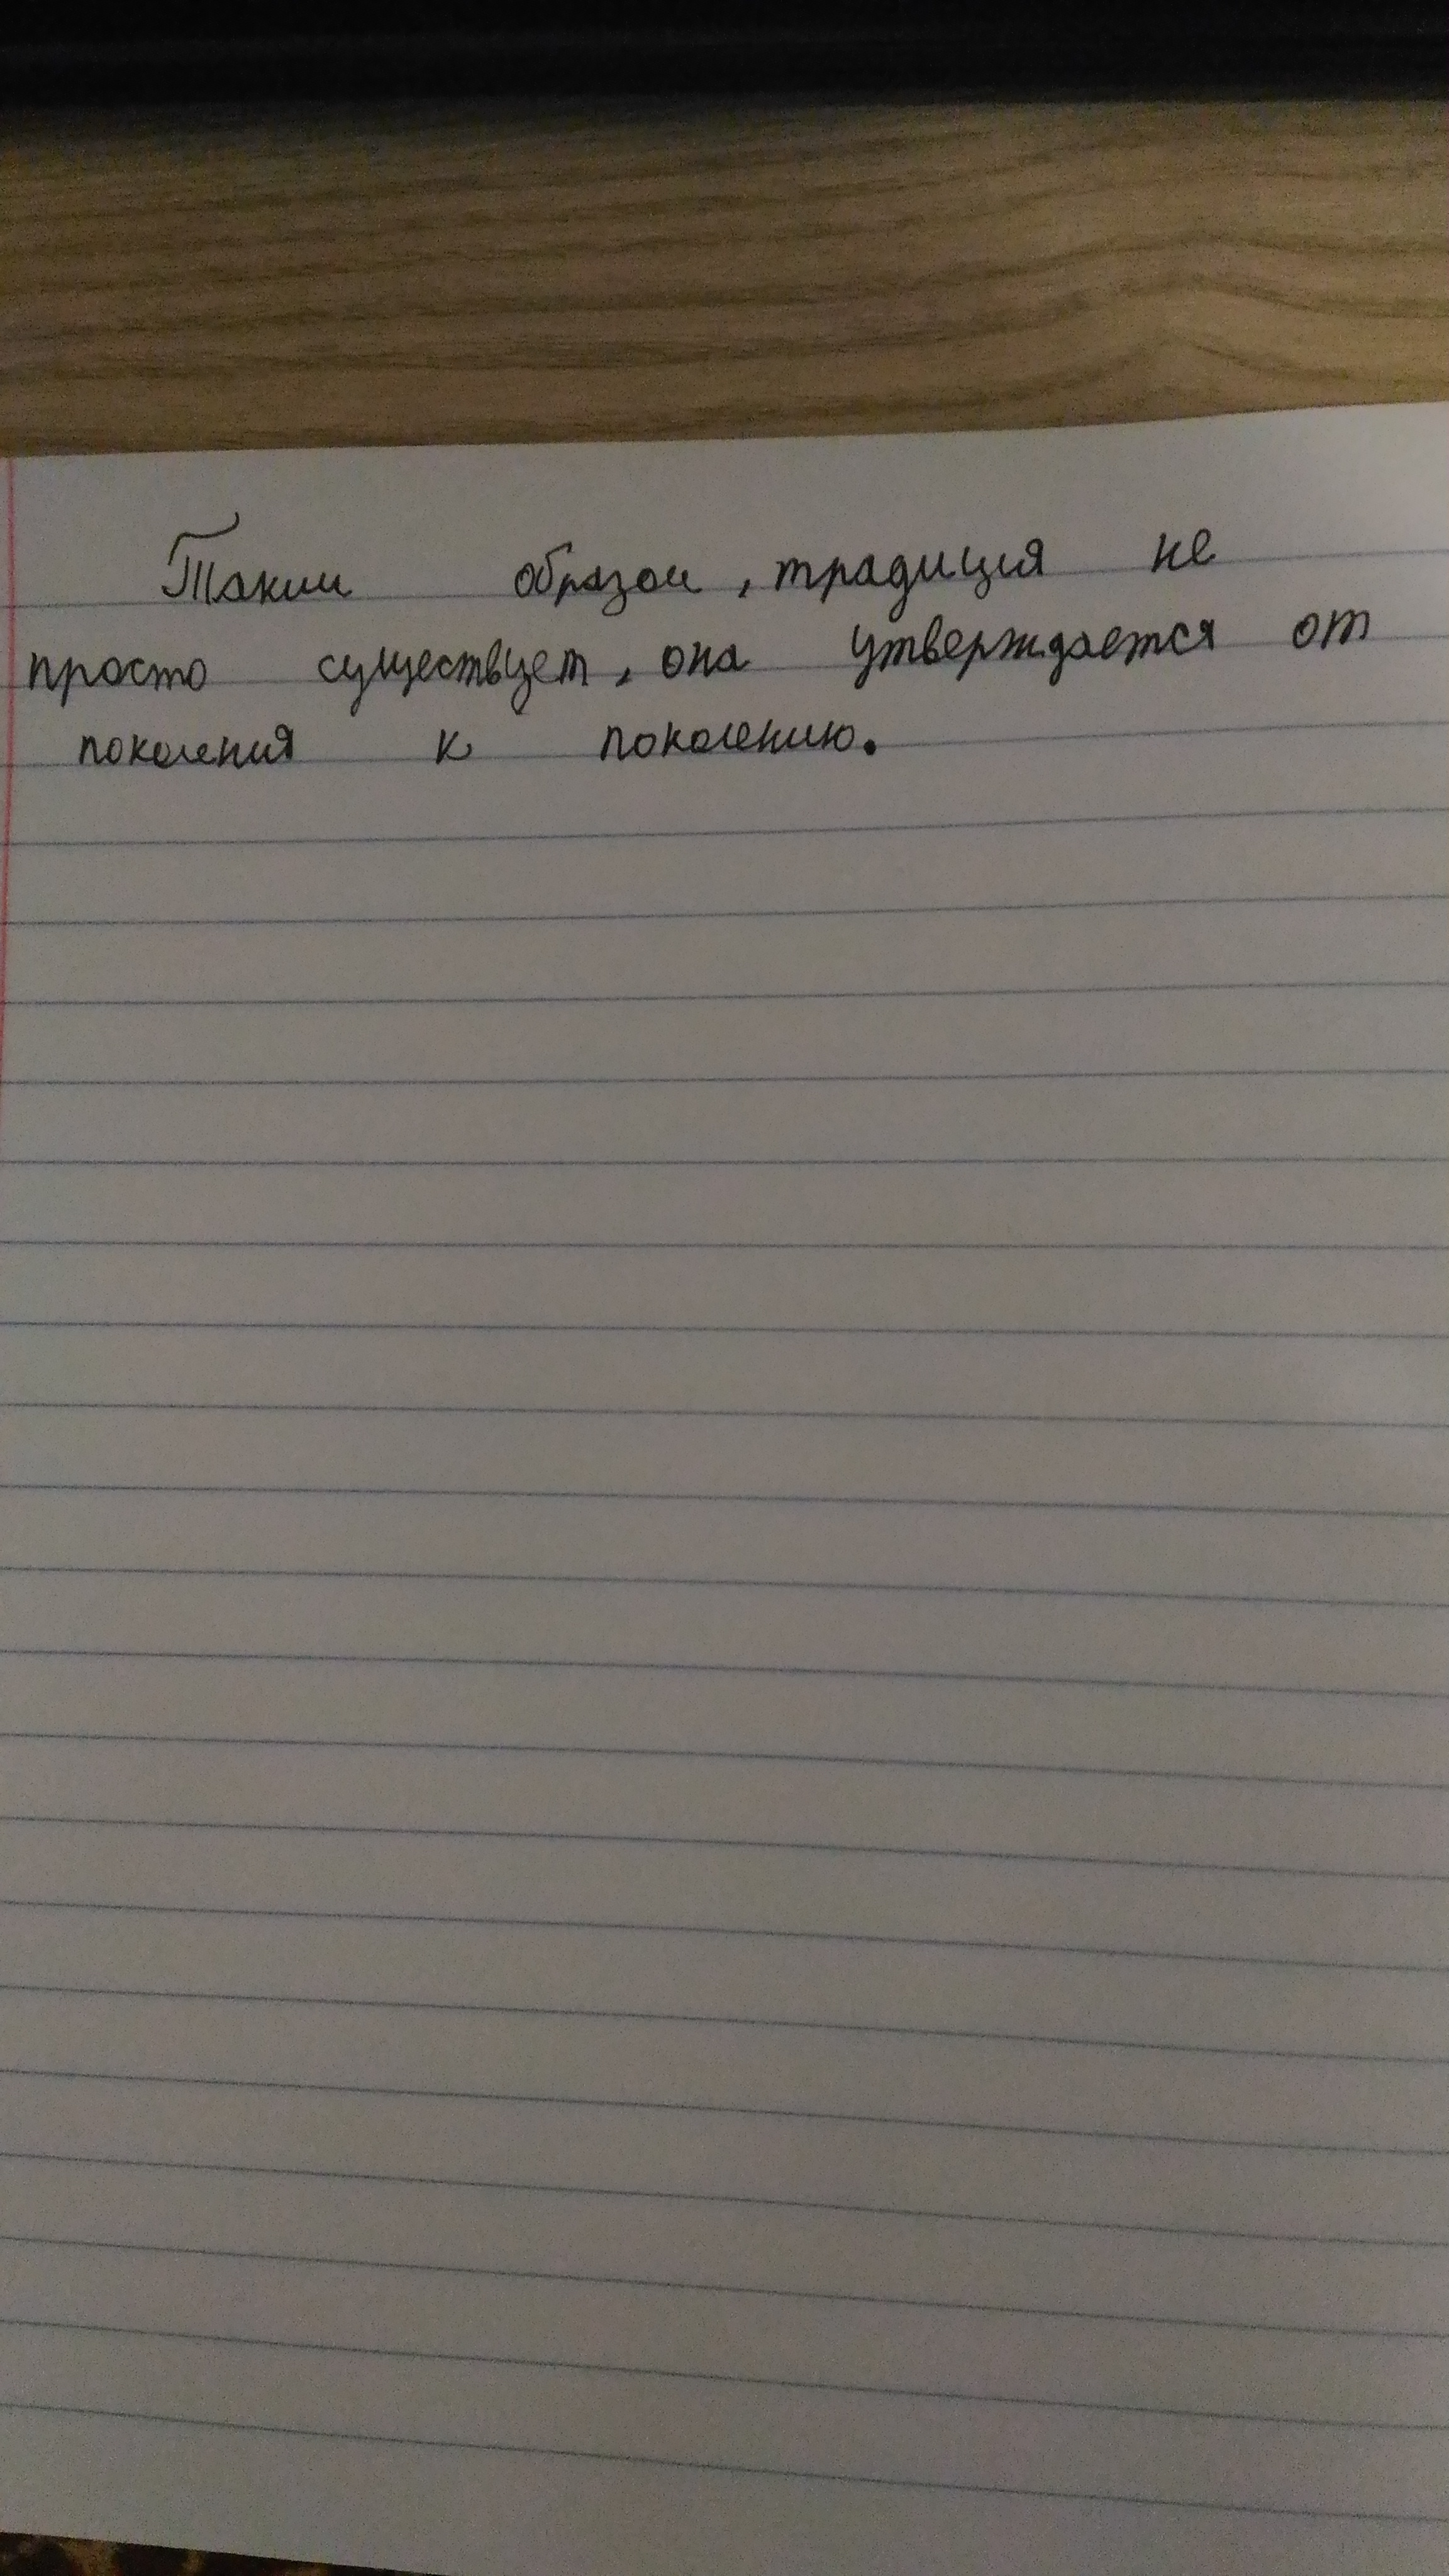 Таким образом, традиция не
просто существует, она утверждается от
поколения к поколению.